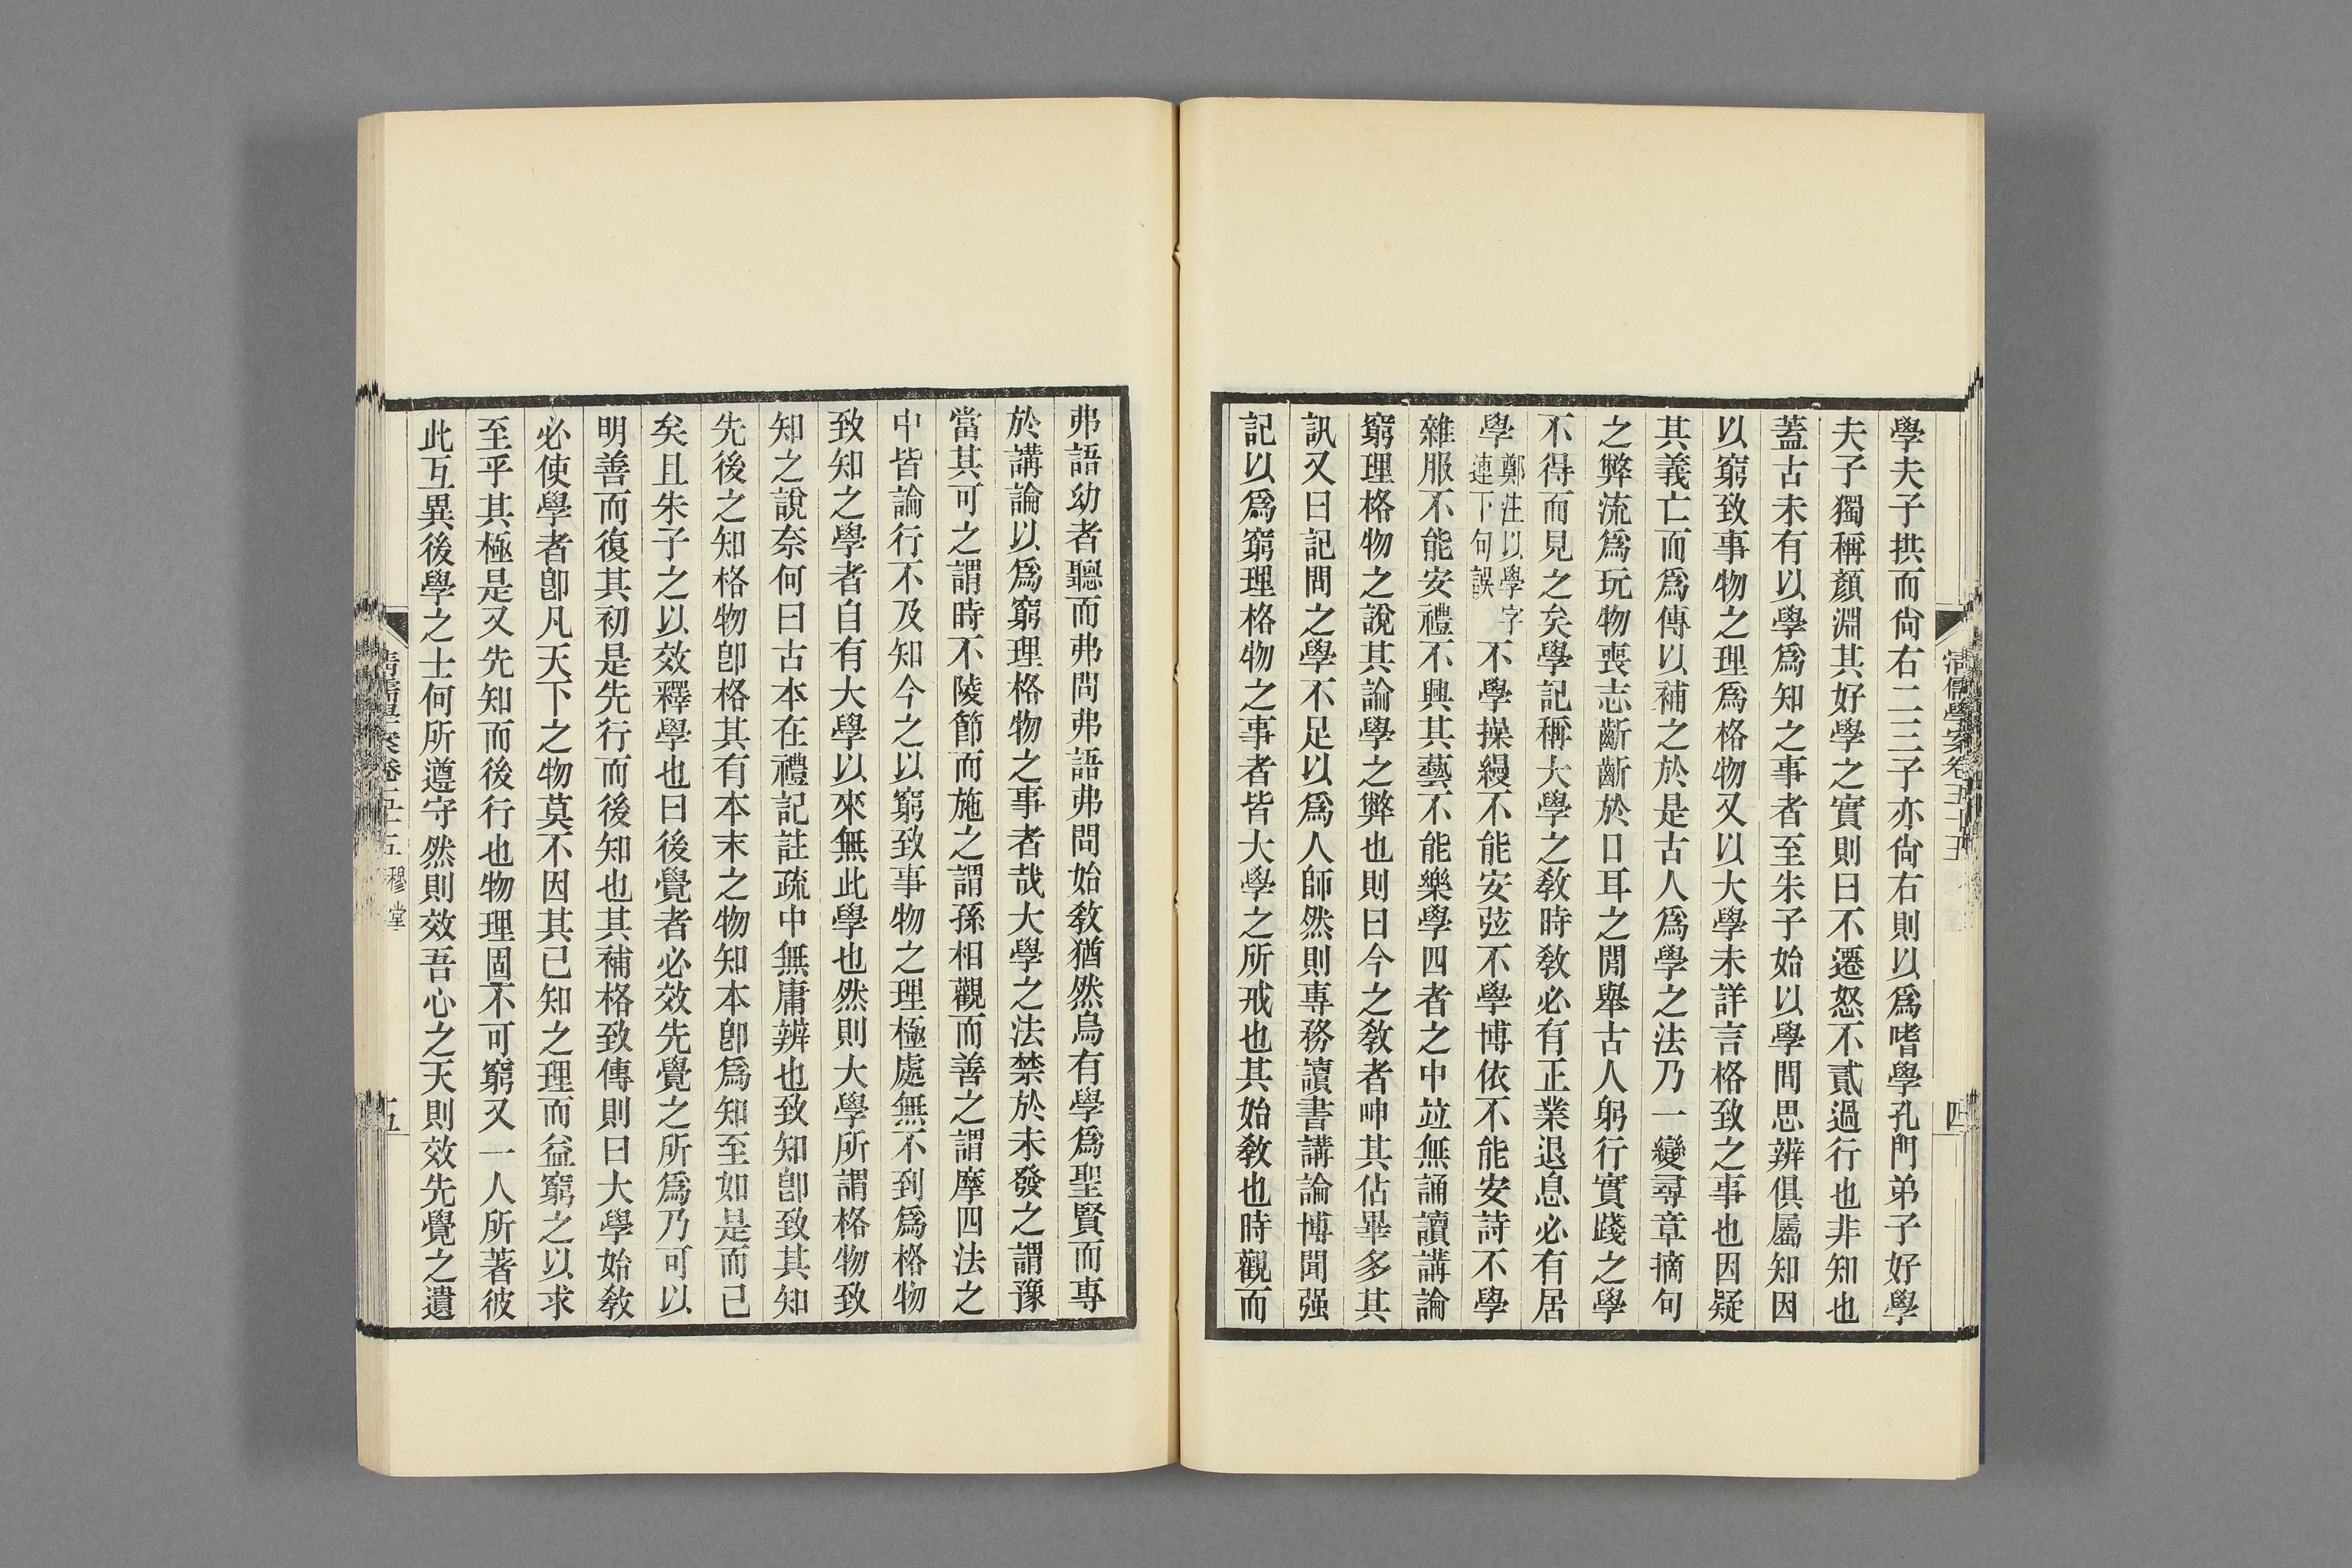 清儒學案卷五十五
四
學夫子拱而尙右二三子亦尙右則以爲嗜學孔門弟子好學
夫子獨稱顏淵其好學之實則曰不遷怒不貳過行也非知也
蓋古未有以學爲知之事者至朱子始以學問思辨俱屬知因
以窮致事物之理爲格物又以大學未詳言格致之事也因疑
其義亡而爲傳以補之於是古人爲學之法乃一變尋章摘句
之弊流爲玩物喪志齗齗於口耳之閒舉古人躬行實踐之學
不得而見之矣學記稱大學之敎時敎必有正業退息必有居
學鄭注以學字連下句誤不學操縵不能安弦不學博依不能安詩不學
雜服不能安禮不興其藝不能樂學四者之中竝無誦讀講論
窮理格物之說其論學之弊也則曰今之敎者呻其佔畢多其
訊又曰記問之學不足以爲人師然則專務讀書講論博聞强
記以爲窮理格物之事者皆大學之所戒也其始敎也時觀而
弗語幼者聽而弗問弗語弗問始敎猶然烏有學爲聖賢而專
於講論以爲窮理格物之事者哉大學之法禁於未發之謂豫
當其可之謂時不陵節而施之謂孫相觀而善之謂摩四法之
中皆論行不及知今之以窮致事物之理極處無不到爲格物
致知之學者自有大學以來無此學也然則大學所謂格物致
知之說奈何曰古本在禮記註疏中無庸辨也致知卽致其知
先後之知格物卽格其有本末之物知本卽爲知至如是而已
矣且朱子之以效釋學也曰後覺者必效先覺之所爲乃可以
明善而復其初是先行而後知也其補格致傳則曰大學始敎
必使學者卽凡天下之物莫不因其已知之理而益窮之以求
至乎其極是又先知而後行也物理固不可窮又一人所著彼
此互異後學之士何所遵守然則效吾心之天則效先覺之遺
清儒學案卷五十五 穆堂
五